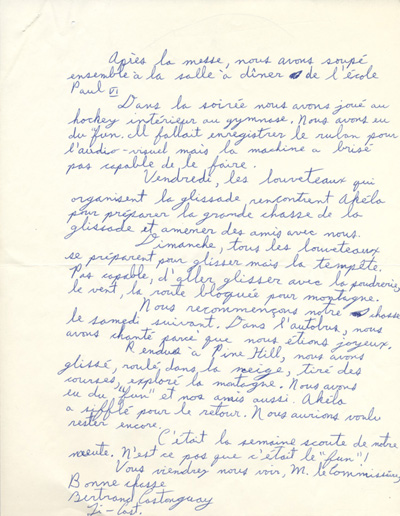 Après la messe, nous avons soupé
ensemble à la salle à dîner de l'école
Paul VI
Dans la soirée nous avons joué au
hockey intérieur au gymnase. Nous avons eu
du fun. Il fallait enregistrer le ruban pour
l'audio-visuel mais la machine a brisé
pas capable de le faire.
Vendredi, les louveteaux qui
organisent la glissade, rencontrent Akéla
pour préparer la grande chasse de la
glissade et amener des amis avec nous.
Dimanche, tous les louveteaux
se préparent pour glisser mais la tempête.
Pas capable, d'aller glisser avec la poudrerie,
le vent, la route bloquée pour montagne.
Nous recommençons notre chasse
le samedi suivant. Dans l'autobus, nous
avons chanté parce que nous étions joyeux.
Rendus à Pine Hill, nous avons
glissé, roulé dans la neige, tiré des
courses, exploré la montagne. Nous avons
eu du "fun" et nos amis aussi. Akéla
a sifflé pour le retour. Nous aurions voulu
rester encore.
C'était la semaine scoute de notre
meute. N'est ce pas que c'était le "fun"!
Vous viendrez nous voir, M. le Commissaire,
Bonne chasse
Bertrand Castonguay
Ti-Cast.